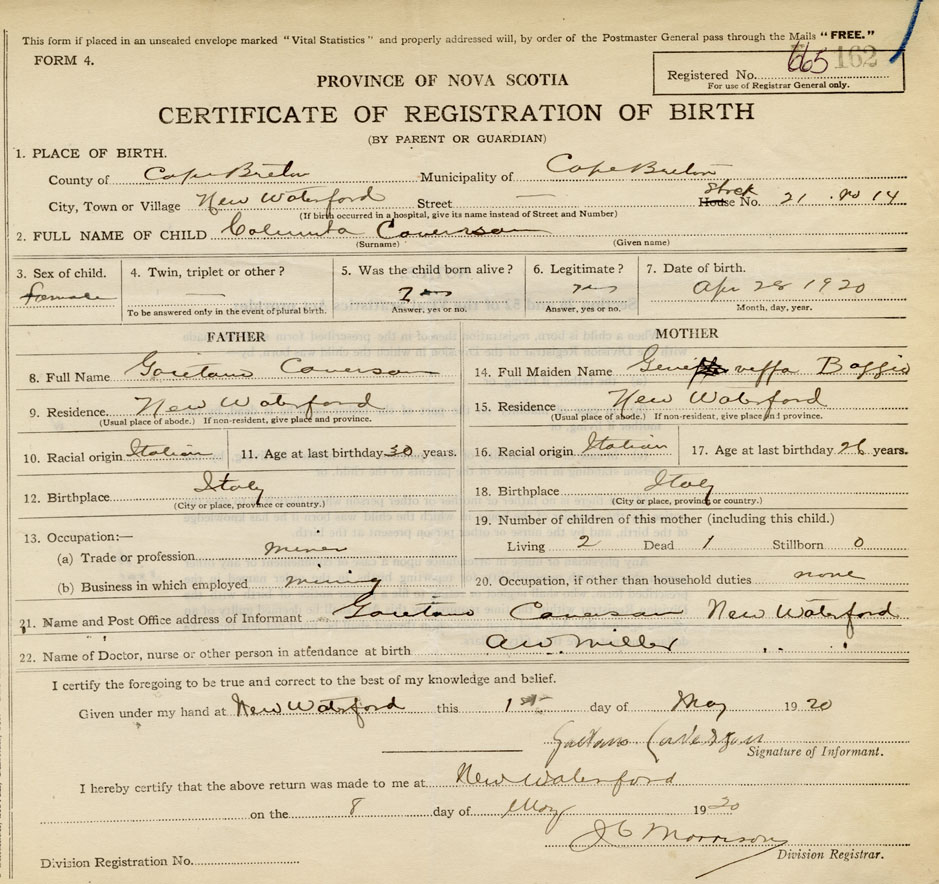 This form if placed in an unsealed envelope marked "Vital Statistics" and properly addressed will, by order of the Postmaster General pass through the Mails "FREE."
FORM 4.
665 162
Registered No.
For use of Registrar General only.
PROVINCE OF NOVA SCOTIA
CERTIFICATE OF REGISTRATION OF BIRTH
(BY PARENT OR GUARDIAN)
1. PLACE OF BIRTH.
County of Cape Breton Municipality of Cape Breton
City, Town or Village New Waterford Street — House Block No. 21 14
(If birth occurred in a hospital, give its name instead of Street and Number)
2. FULL NAME OF CHILD Columba Caverson
(Surname) (Given name)
3. Sex of child. 4. Twin, triplet or other? 5. Was the child born alive? 6. Legitimate? 7. Date of birth.
female — Yes yes Apr 28 1920
To be answered only in the event of plural birth. Answer, yes or no. Answer, yes or no. Month, day, year.
FATHER
8. Full Name Gaetano Caverson
9. Residence. New Waterford
(Usual place of abode.) If non-resident, give place and province.
10. Racial origin Italian 11. Age at last birthday 30 years.
12. Birthplace Italy
(City or place, province or country.)
13. Occupation:—
(a) Trade or profession miner
(b) Business in which employed mining
MOTHER
14. Full Maiden Name Geneveffa Baggio
15. Residence New Waterford
(Usual place of abode.) If non-resident, give place and province.
16. Racial origin Italian 17. Age at last birthday 26 years.
18. Birthplace Italy
(City or place, province or country.)
19. Number of children of this mother (including this child.)
Living 2 Dead 1 Stillborn 0
20. Occupation, if other than household duties none
21. Name and Post Office address of Informant Gaetano Caverson New Waterford
22. Name of Doctor, nurse or other person in attendance at birth A.W. Miller
I certify the foregoing to be true and correct to the best of my knowledge and belief.
Given under my hand at New Waterford this 1st day of May 1920
Gaetano
Signature of Informant.
I hereby certify that the above return was made to me at New Waterford
on the 8 day of May 1920
J C Morrison
Division Registration No. Division Registrar.